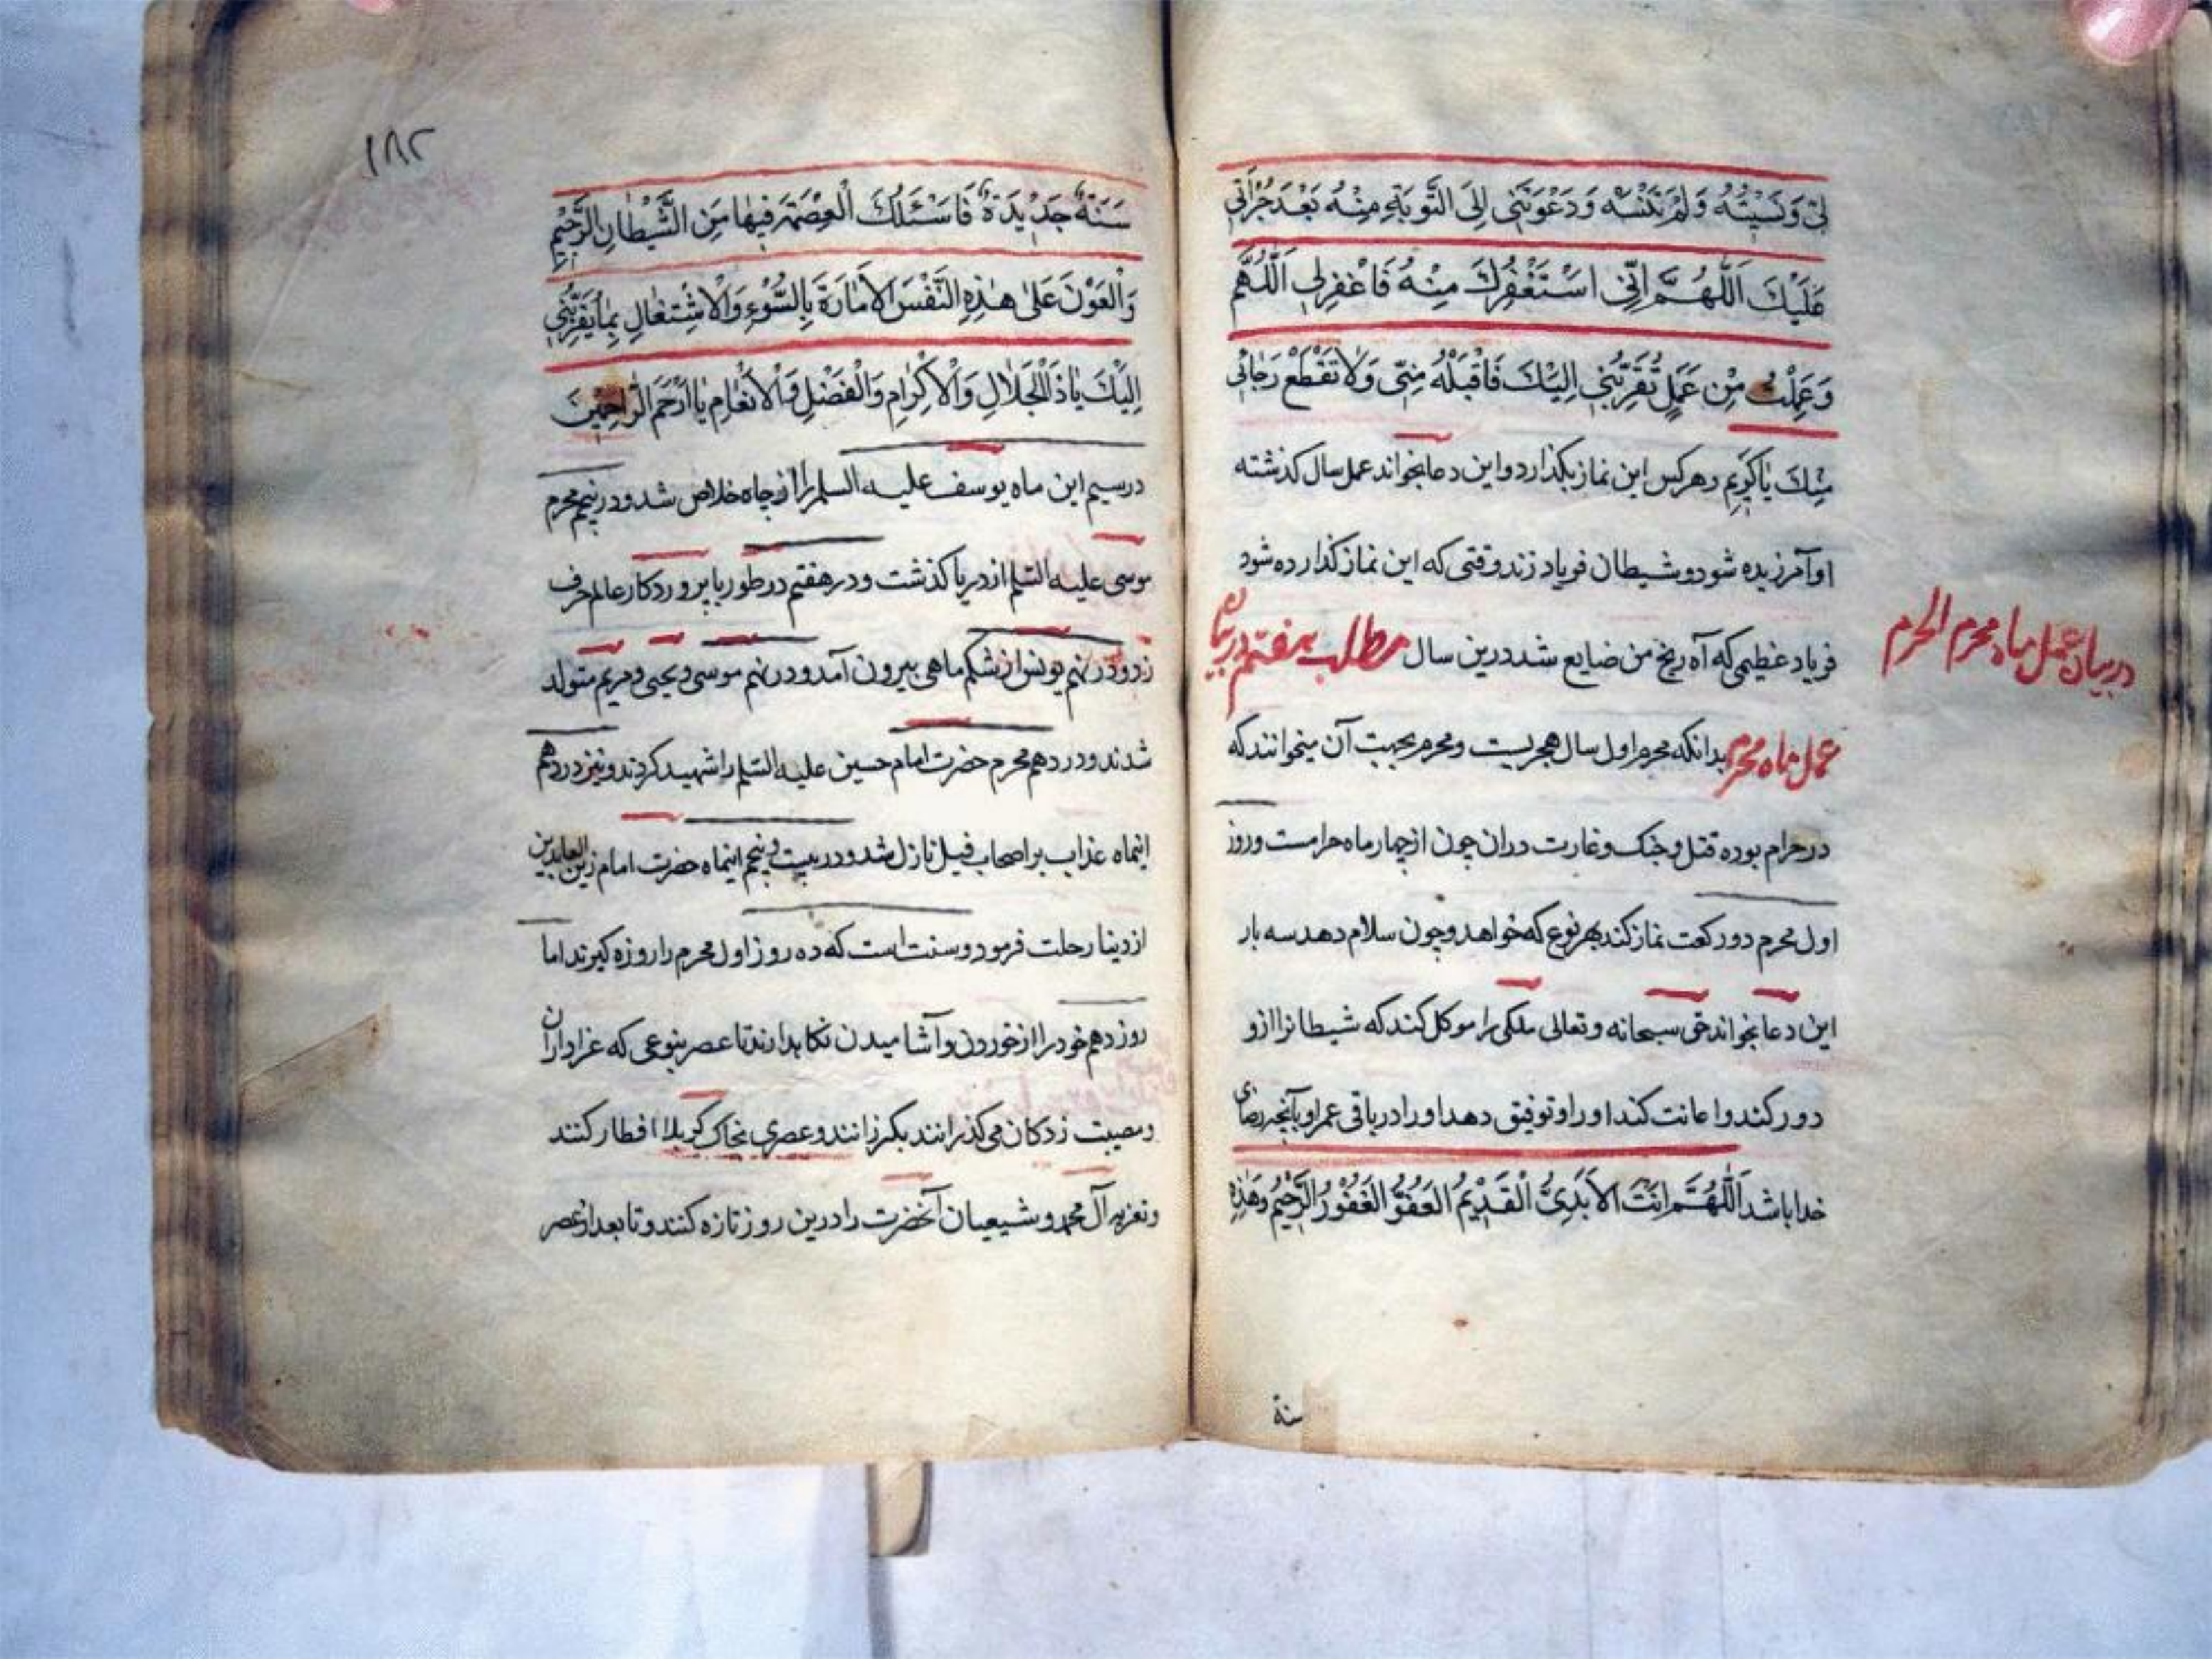 لِی وَنَسِیتُهُ وَلَمْ تَنْسَهُ وَدَعَوْتَنِی اِلَی التَّوبَةِ مِنْهُ بَعْدَ جُرْاَتِی
عَلَیْكَ اَللّٰهُمَّ اِنِّی اسْتَغْفِرُكَ مِنْهُ فَاغْفِرلِی اَللّٰهُمَّ
وَعَمِلْتُ مِن عَمَلٍ تُقَرِّبُنِی اِلَیْكَ فَاقْبَلْهُ مِنِّی وَلَا تَقْطَعْ رَجَائِی
مِنْكَ یَا كَرِیم وهركس این نماز بكذارد واین دعا بخواند عمل سال كذشته
او آمرزیده شود وشیطان فریاد زند وقتی كه این نماز كذارده شود
فریاد عظیمی كه آه رنج من ضایع شد درین سال مطلب هفتم در بیان
در بیان عمل ماه محرم الحرم
عمل ماه محرم بدانكه محرم اول سال هجریست ومحرم بجهت آن میخوانند كه
در حرام بوده قتل وجنك وغارت دران چون از چهار ماه حرامست وروز
اول محرم دو ركعت نماز كند بهر نوع كه خواهد وچون سلام دهد سه بار
این دعا بخواند حق سبحانه وتعالی ملكی را موكل كند كه شیطانرا ازو
دور كند واعانت كند اورا وتوفیق دهد اورا در باقی عمر او بآنچه رضای
خدا باشد اَللّٰهُمَّ اَنْتَ الاَبَدِیُّ الْقَدِیْمُ العَفُوُّ الغَفُوْرُ الرَّحِیْمُ وَهٰذِهِ
سنة
١٨٢
سَنَةٌ جَدِیْدَةٌ فَاَسْئَلُكَ الْعِصْمَةَ فِیهَا مِنَ الشَّیْطَانِ الرَّجِیْمِ
وَالْعَوْنَ عَلٰی هٰذِهِ النَّفْسِ الاَمَّارَةِ بِالسُّوْءِ وَالْاِشْتِغَالِ بِمَا یُقَرِّبُنِی
اِلَیْكَ یَا ذَا الْجَلَالِ وَالْاِكْرَامِ وَالْفَضْلِ وَالْاِنْعَامِ یَا اَرْحَمَ الرَّاحِمِیْنَ
درسیم این ماه یوسف علیه السلم را از چاه خلاص شد ودر پنجم محرم
موسی علیه السّلم از دریا كذشت ودر هفتم در طور با پروردكار عالم حرف
زد ودر نهم یونس از شكم ماهی بیرون آمد ودر نهم موسی ویحیی ومریم متولد
شدند ودر دهم محرم حضرت امام حسین علیه السّلم را شهید كردند ونیز در دهم
اینماه عذاب بر اصحاب فیل نازل شد ودر بیست وپنجم اینماه حضرت امام زین العابدین
از دینا رحلت فرمود وسنت است كه ده روز اول محرم را روزه كیرند اما
روز دهم خود را از خوردن وآشامیدن نكاه دارند تا عصر بنوعی كه عزاداران
ومصیبت زدكان می كذرانند بكرزانند وعصری بخاك كربلا افطار كنند
وتعزیه آل محمد وشیعیان آنحضرت را درین روز تازه كنند وتا بعد از عصر